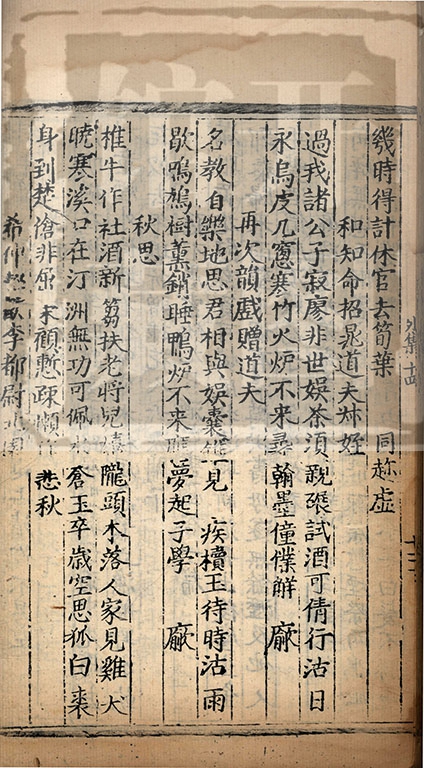 幾時得計休官去筍葉 同趂虛
和知命招晁道夫叔姪
過我諸公子寂寥非世娛茶須親碾試酒可倩行沽日
永烏皮几窻寒竹火炉不来尋翰墨僮僕解 厰
再次韻戲贈道夫
名教自樂地思君相與娛囊 見 疾櫝玉待時沽雨
歇鳴鳩樹薰銷睡鴨炉不来 夢起子學 厰
秋思
椎牛作社酒新篘扶老将兒 隴頭木落人家見雞犬
曉寒溪口在汀洲無功可佩 蒼玉卒歳空思狐白裘
身到楚 非屈宋顧慙疎懶 悲秋
李都尉
外集十四